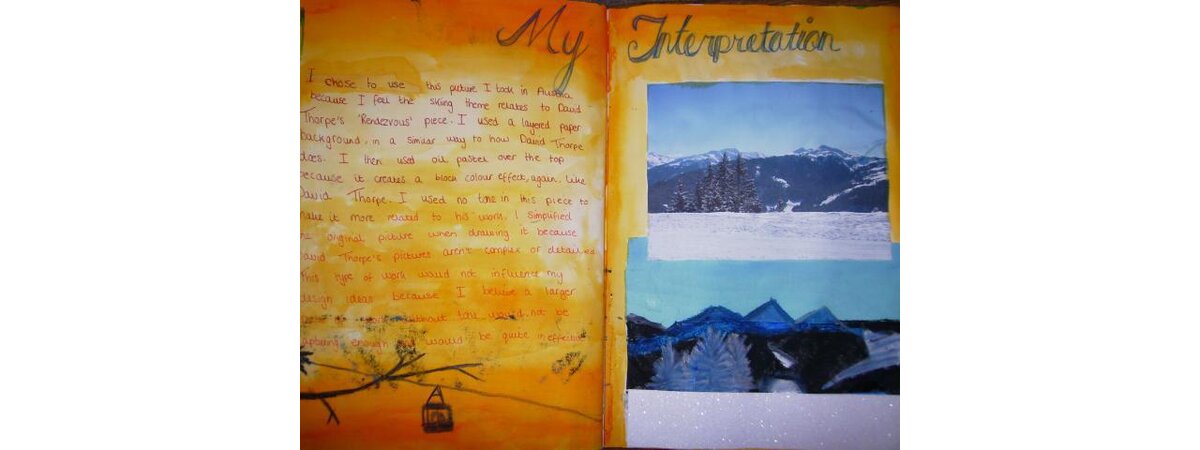 My Interpretation
I chose to use this picture I took in Austria
because I feel the skiing theme relates to David
Thorpe's 'Rendezvous' piece. I used a layered paper
background, in a similar way to how David Thorpe
does. I then used oil pastel over the top
because it creates a block colour effect, again. Like
David Thorpe. I used no tone in this piece to
make it more related to his work. I simplified
the original picture when drawing it because
David Thorpe's pictures aren't complex or detailed
This type of work would not influence my
design ideas because I believe a larger
without tone would not be
enough would be quite ineffective